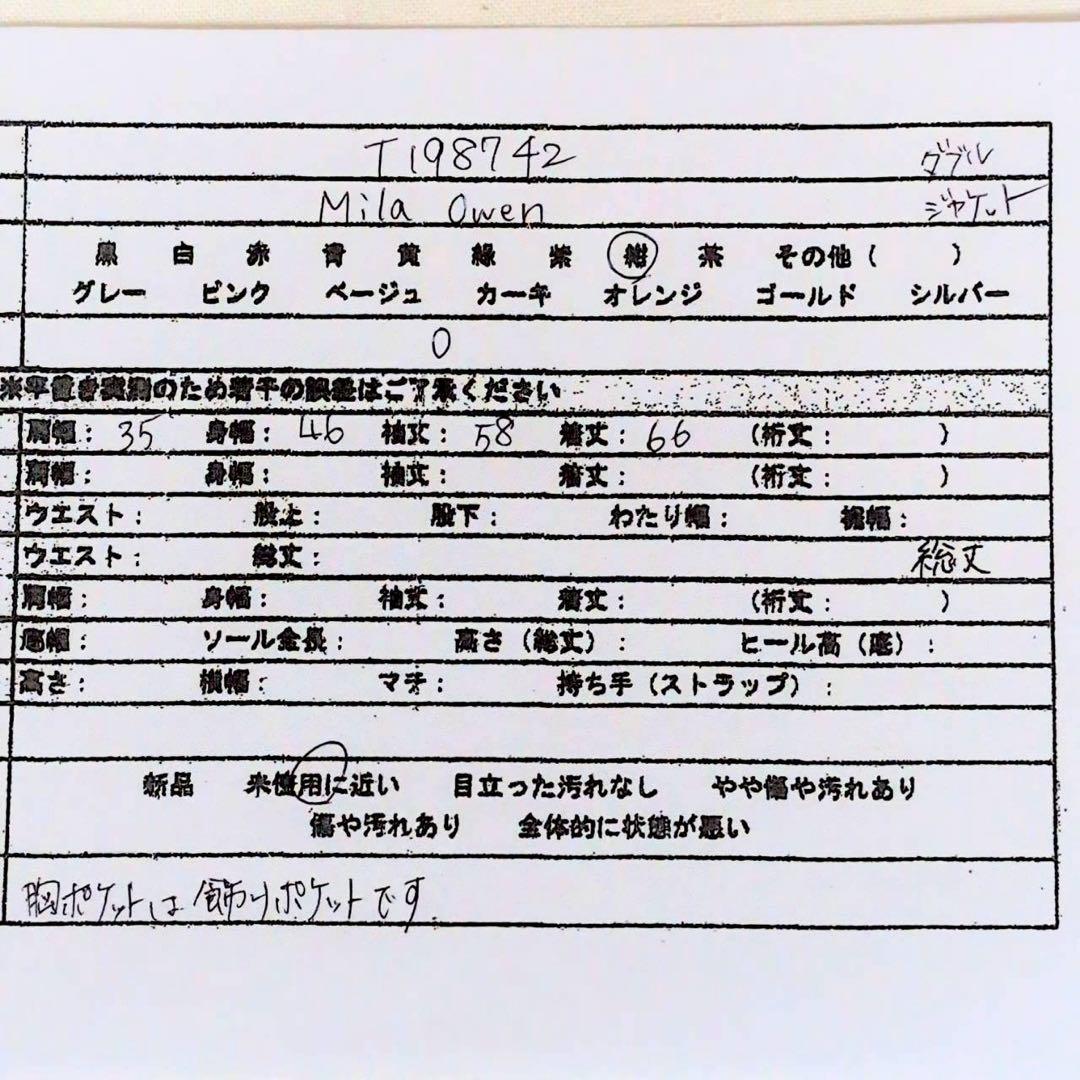 T198742 ダブル
Mila Owen ジャケット
黒 白 赤 青 黄 緑 紫 紺 茶 その他（ ）
グレー ピンク ベージュ カーキ オレンジ ゴールド シルバー
0
※平置き実測のため若干の誤差はご了承ください
肩幅： 35 身幅： 46 袖丈： 58 着丈： 66 （裄丈： ）
肩幅： 身幅： 袖丈： 着丈： （裄丈： ）
ウエスト： 股上： 股下： わたり幅： 裾幅：
ウエスト： 総丈： 総丈
肩幅： 身幅： 袖丈： 着丈： （裄丈： ）
底幅： ソール全長： 高さ（総丈）： ヒール高（底）：
高さ： 横幅： マチ： 持ち手（ストラップ）：
新品 未使用に近い 目立った汚れなし やや傷や汚れあり
傷や汚れあり 全体的に状態が悪い
胸ポケットは飾りポケットです。